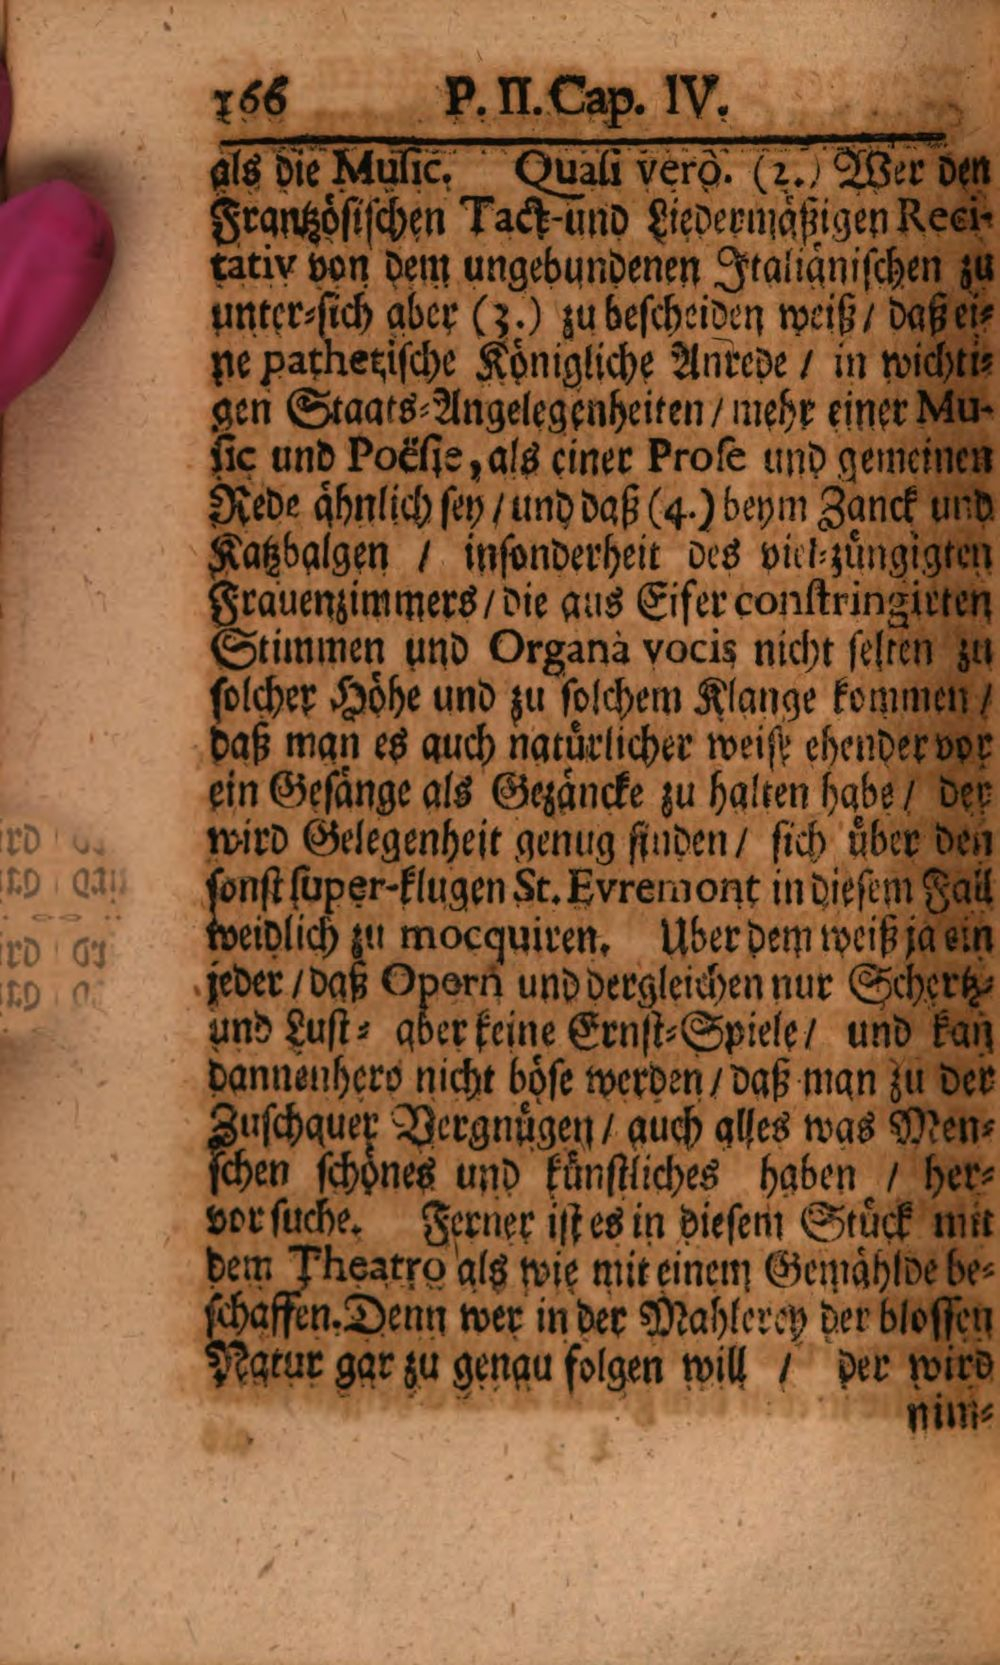 166 P. II. Cap. IV.
als die Music. Quasi verò. (2.) Wer den
Frantzösischen Tact-und Liedermäßigen Reci-
tativ von dem ungebundenen Jtaliänischen zu
unter-sich aber (3.) zu bescheiden weiß / daß ei-
ne pathetische Königliche Anrede / in wichti-
gen Staats-Angelegenheiten / mehr einer Mu-
sic und Poësie, als einer Prose und gemeinen
Rede ähnlich sey / und daß (4.) beym Zanck und
Katzbalgen / insonderheit des viel-züngigten
Frauenzimmers / die aus Eifer constringirten
Stimmen und Organa vocis nicht selten zu
solcher Höhe und zu solchem Klange kommen /
daß man es auch natürlicher weise ehender vor
ein Gesänge als Gezäncke zu halten habe / der
wird Gelegenheit genug finden / sich über den
sonst super-klugen St. Evremont in diesem Fall
weidlich zu mocquiren. Uber dem weiß ja ein
jeder / daß Opern und dergleichen nur Schertz-
und Lust- aber keine Ernst-Spiele / und kan
dannenhero nicht böse werden / daß man zu der
Zuschauer Vergnügen / auch alles was Men-
schen schönes und künstliches haben / her-
vor suche. Ferner ist es in diesem Stück mit
dem Theatro als wie mit einem Gemählde be-
schaffen. Denn wer in der Mahlerey der blossen
Natur gar zu genau folgen will / der wird
nim-